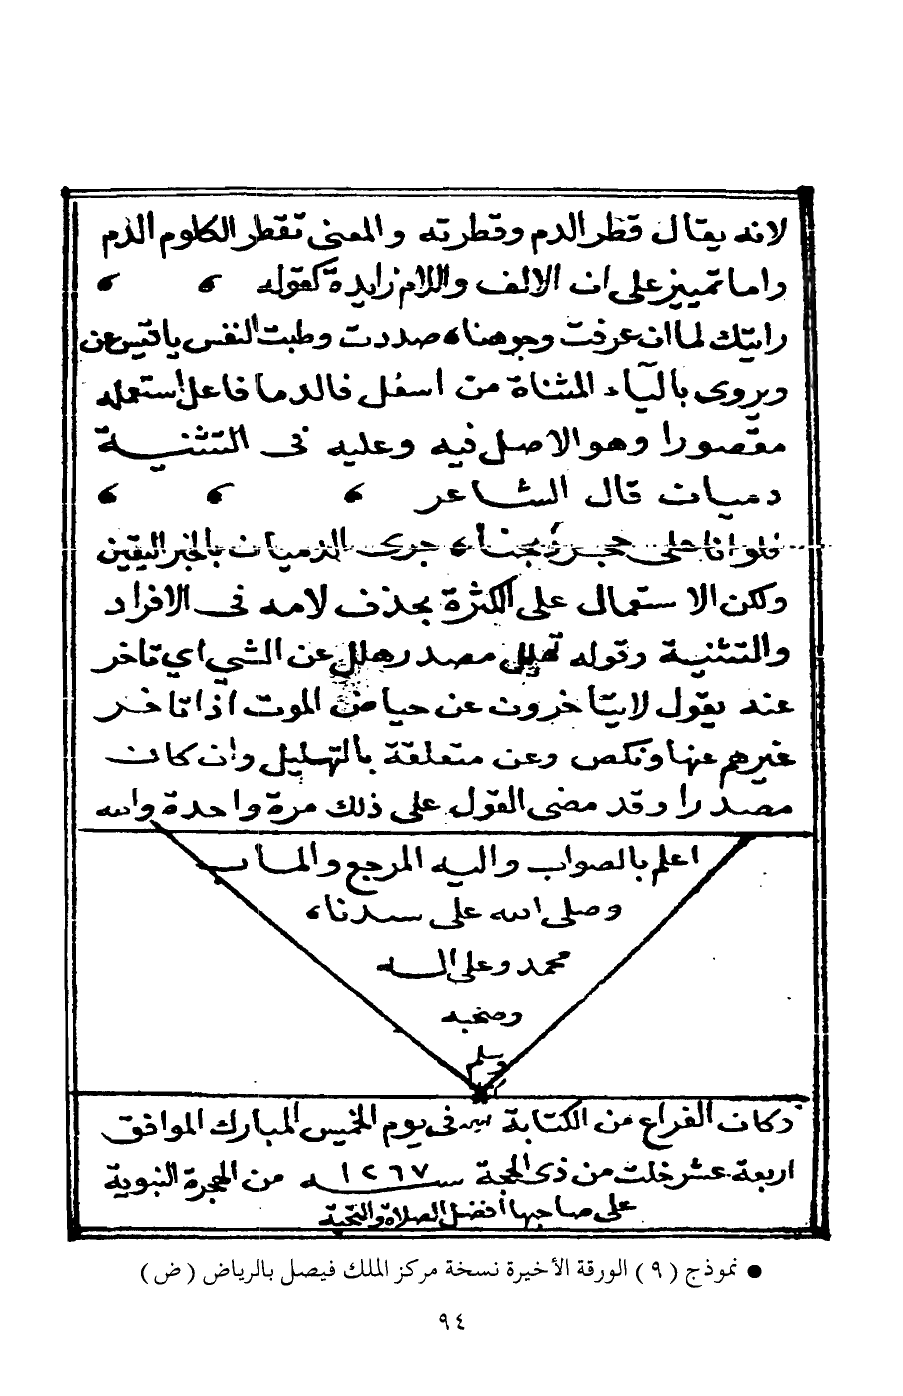 لانه يقال قطر الدم وقطرته والمعنى تقطر الكلوم الدم
واما تمييز على ان الالف واللام زايدة كقوله
رايتك لما ان عرفت وجوهنا صددت وطبت النفس يا قيس عن
ويروى بالياء المثناة من اسفل فالدما فاعل استعمله
مقصورا وهو الاصل فيه وعليه فى التثنية
دميان قال الشاعر
فلو انا على حجر ذبحنا جرى الدميان بالخبر اليقين
ولكن الاستعمال على الكثرة بحذف لامه فى الافراد
والتثنية وقوله تهليل مصدر هلل عن الشي اي تاخر
عنه يقول لا يتأخرون عن حياض الموت اذا تاخر
غيرهم عنها ونكص وعن متعلقة بالتهليل وان كان
مصدرا وقد مضى القول على ذلك مرة واحدة والله
اعلم بالصواب واليه المرجع والمآب
وصلى الله على سيدنا
محمد وعلى اله
وصحبه
وسلم
وكان الفراغ من الكتابة فى يوم الخميس المبارك الموافق
اربعة عشر خلت من ذى الحجة سنه ١٢٦٧ من الهجرة النبوية
على صاحبها أفضل الصلاة والتحية
● نموذج ( ٩ ) الورقة الأخيرة نسخة مركز الملك فيصل بالرياض ( ض )
٩٤